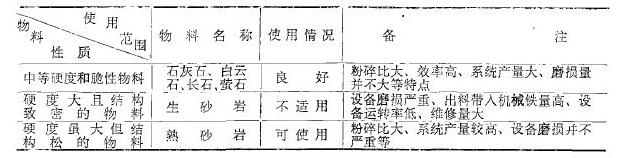 物料性质 使用范围 物料名称 使用情况 备注
中等硬度和脆性物料 石灰石、白云石、长石、萤石 良好 粉碎比大、效率高、系统产量大、磨损量并不大等特点
硬度大且结构致密的物料 生砂岩 不适用 设备磨损严重、出料带入机械铁量高、设备运转率低、维修量大
硬度虽大但结构松的物料 熟砂岩 可使用 粉碎比大、系统产量较高、设备磨损并不严重等